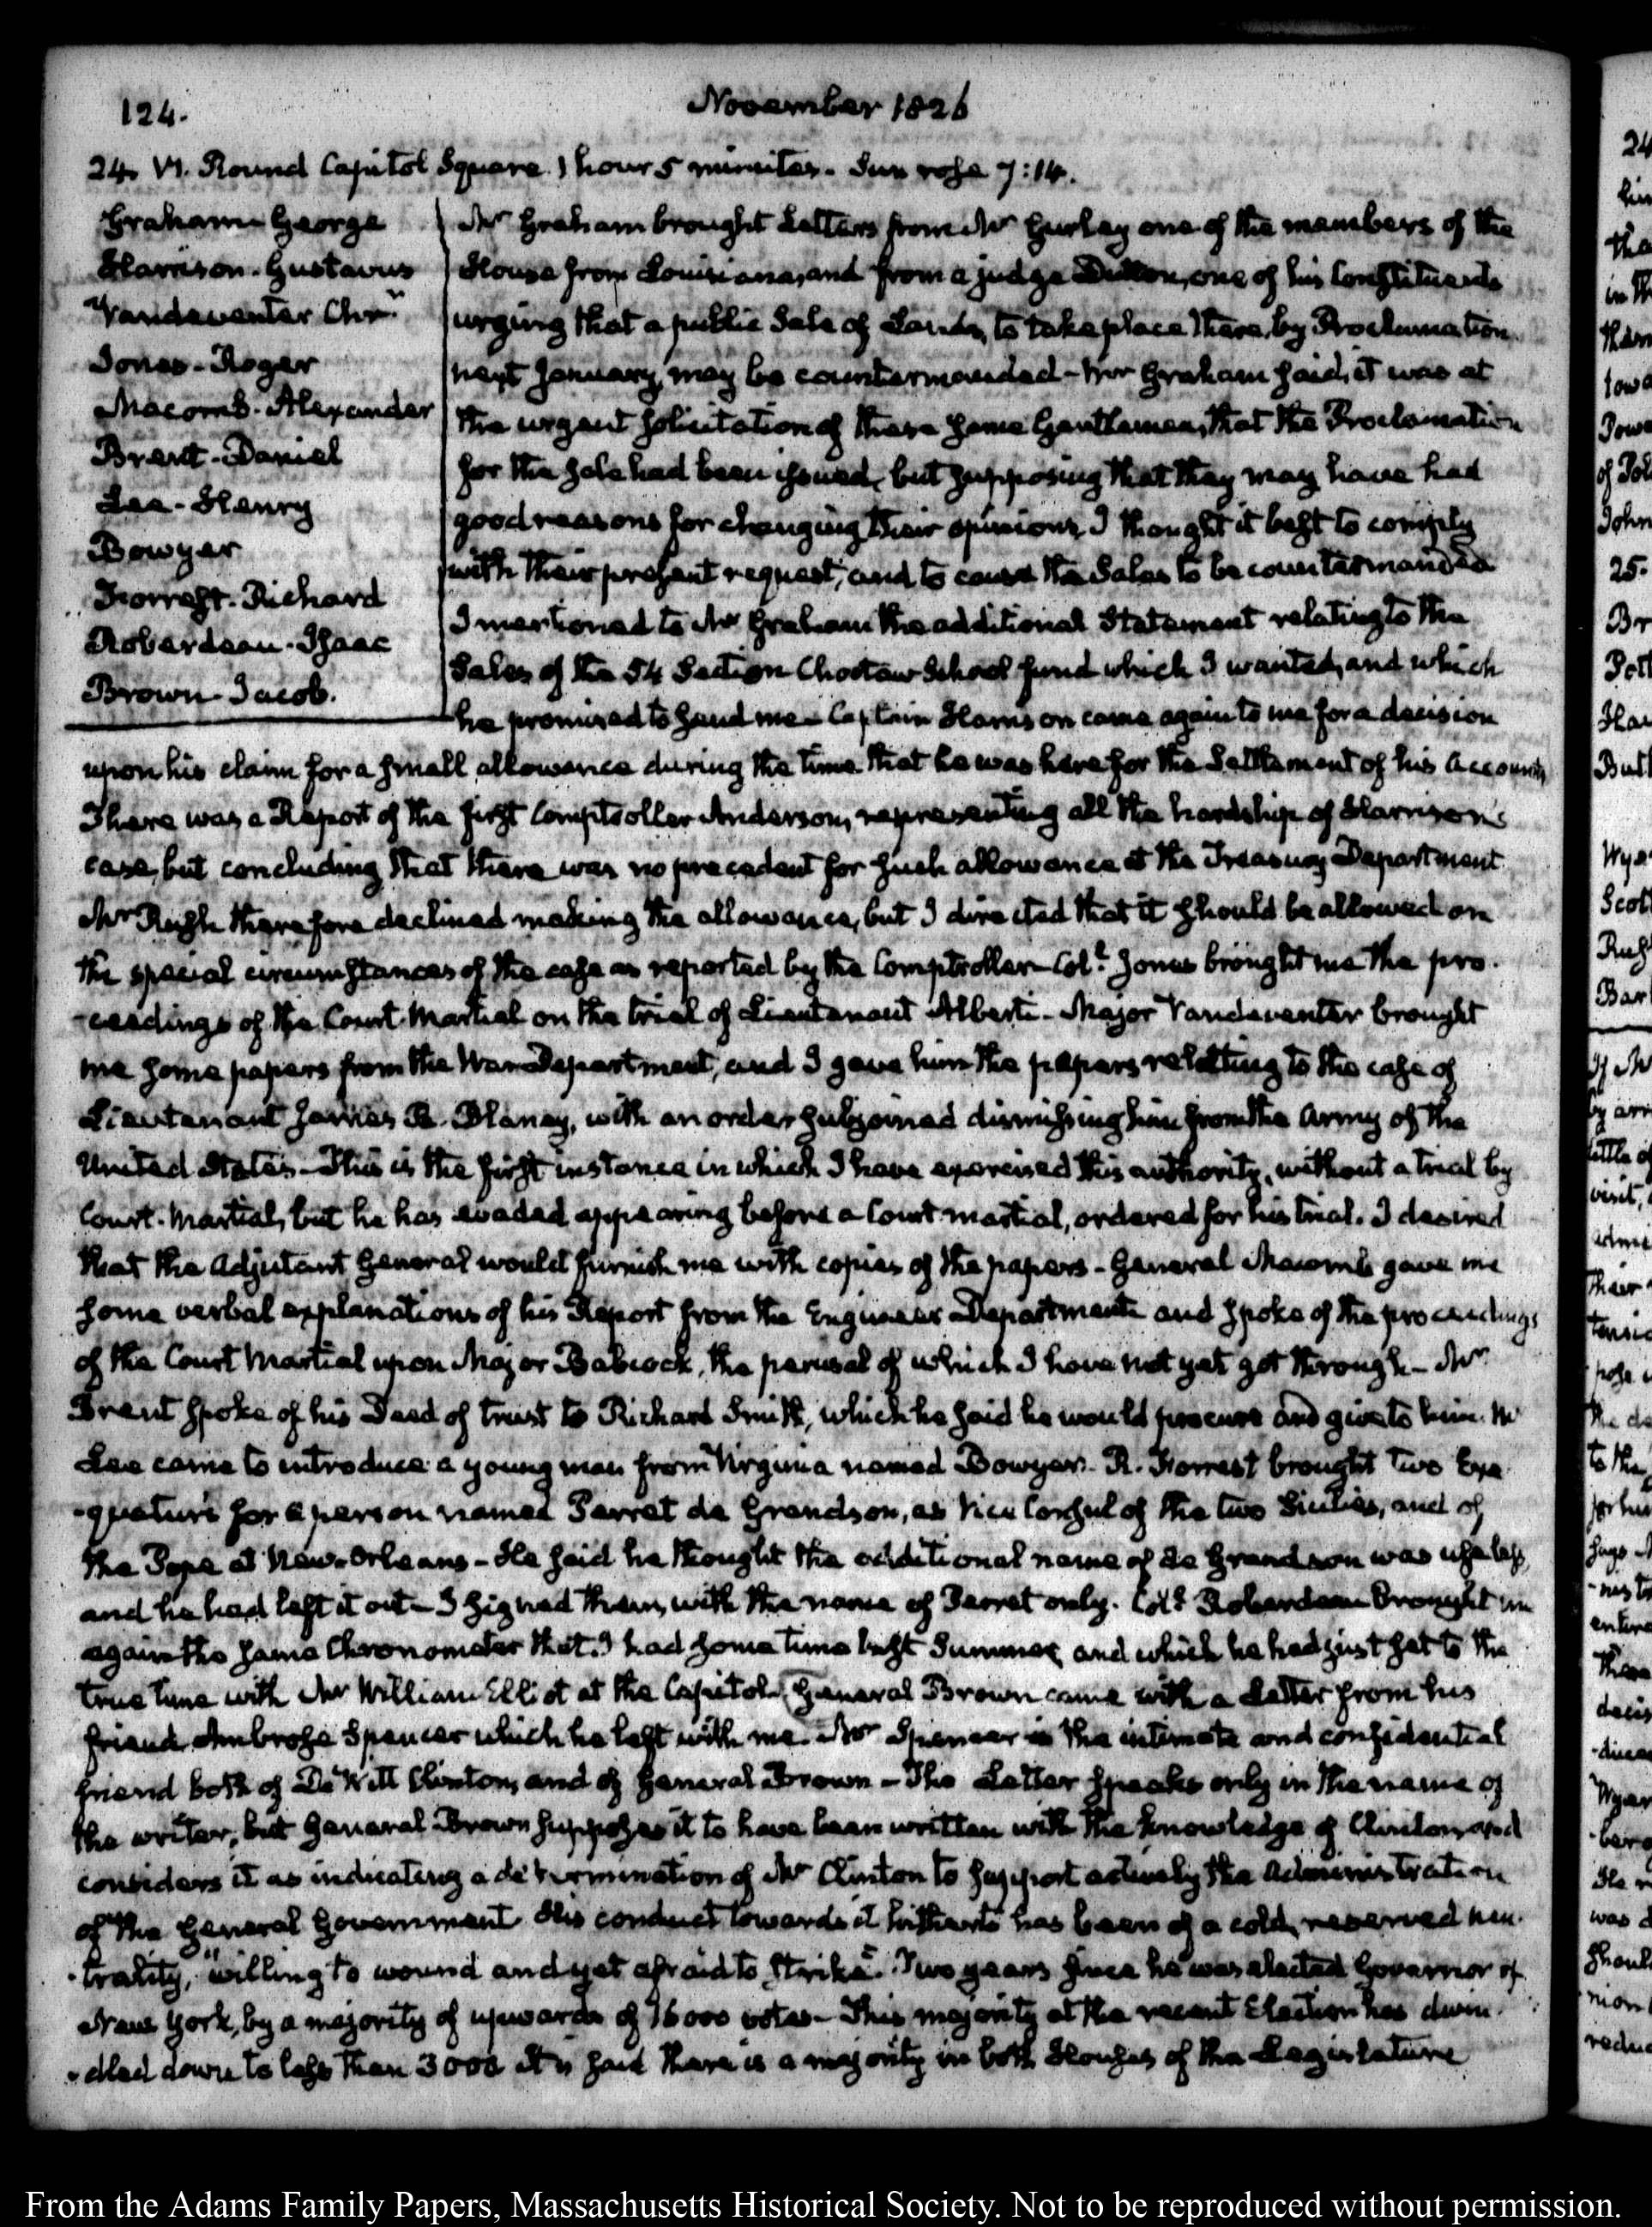 124.
November 1826
24. VI. Round Capitol Square 1 hour 5 minutes. Sun rose 7:14.
Graham George
Harrison. Gustavus
Vandeventer Chr.
Jones. Roger
Macomb. Alexander
Brent. Daniel
Lee. Henry
Bowyer
Forrest. Richard
Roberdeau. Isaac
Brown Jacob.
Mr Graham brought Letters from Mr Gurley one of the members of the
House from Louisiana, and from a judge Dutton, one of his Constituents
urging that a public Sale of Lands, to take place there, by Proclamation
next January, may be countermanded — Mr Graham said, it was at
the urgent solicitation of these same Gentlemen, that the Proclamation
for the sale had been issued, but supposing that they may have had
good reasons for changing their opinions, I thought it best to comply
with their present request, and to cause the Sales to be countermanded
I mentioned to Mr Graham the additional Statement relating to the
Sales of the 54 Section Choctaw School fund which I wanted, and which
he promised to send me — Captain Harrison came again to me for a decision
upon his claim for a small allowance during the time that he was here for the Settlement of his Accounts,
There was a Report of the first Comptroller Anderson, representing all the hardship of Harrison's
case, but concluding that there was no precedent for such allowance at the Treasury Department.
Mr Rush therefore declined making the allowance, but I directed that it should be allowed on
the special circumstances of the case as reported by the Comptroller — Coll. Jones brought me the pro-
-ceedings of the Court-Martial on the trial of Lieutenant Alberti — Major Vandeventer brought
me some papers from the War Department, and I gave him the papers relating to the case of
Lieutenant James R. Blaney, with an order subjoined dismissing him from the Army of the
United States — This is the first instance in which I have exercised this authority, without a trial by
Court-Martial, but he has evaded appearing before a Court martial, ordered for his trial. I desired
that the Adjutant General would furnish me with copies of the papers — General Macomb gave me
some verbal explanations of his Report from the Engineer Department and spoke of the proceedings
of the Court Martial upon Major Babcock, the perusal of which I have not yet got through — Mr
Brent spoke of his Deed of trust to Richard Smith, which he said he would procure and give to him. Mr
Lee came to introduce a young man from Virginia named Bowyer — R. Forrest brought two Exe-
-quaturs for a person named Parret de Grandson, as Vice Consul of the two Sicilies, and of
the Pope at New-Orleans — He said he thought the additional name of de Grandson was useless,
and he had left it out — I signed them, with the name of Parret only. Coll. Roberdeau brought me
again the same Chronometer that I had some time last Summer, and which he had just set to the
true time with Mr William Elliot at the Capitol. General Brown came with a Letter from his
friend Ambrose Spencer which he left with me. Mr Spencer is the intimate and confidential
friend both of De Witt Clinton, and of General Brown — The Letter speaks only in the name of
the writer; but General Brown supposes it to have been written with the knowledge of Clinton, and
considers it as indicating a determination of Mr Clinton to support actively the Administration
of the General Government. His conduct towards it hitherto has been of a cold, reserved neu-
-trality, "willing to wound and yet afraid to strike". Two years since he was elected Governor of
New York, by a majority of upwards of 16000 votes — This majority at the recent Election has dwin-
-dled down to less than 3000 It is said there is a majority in both Houses of the Legislature
From the Adams Family Papers, Massachusetts Historical Society. Not to be reproduced without permission.